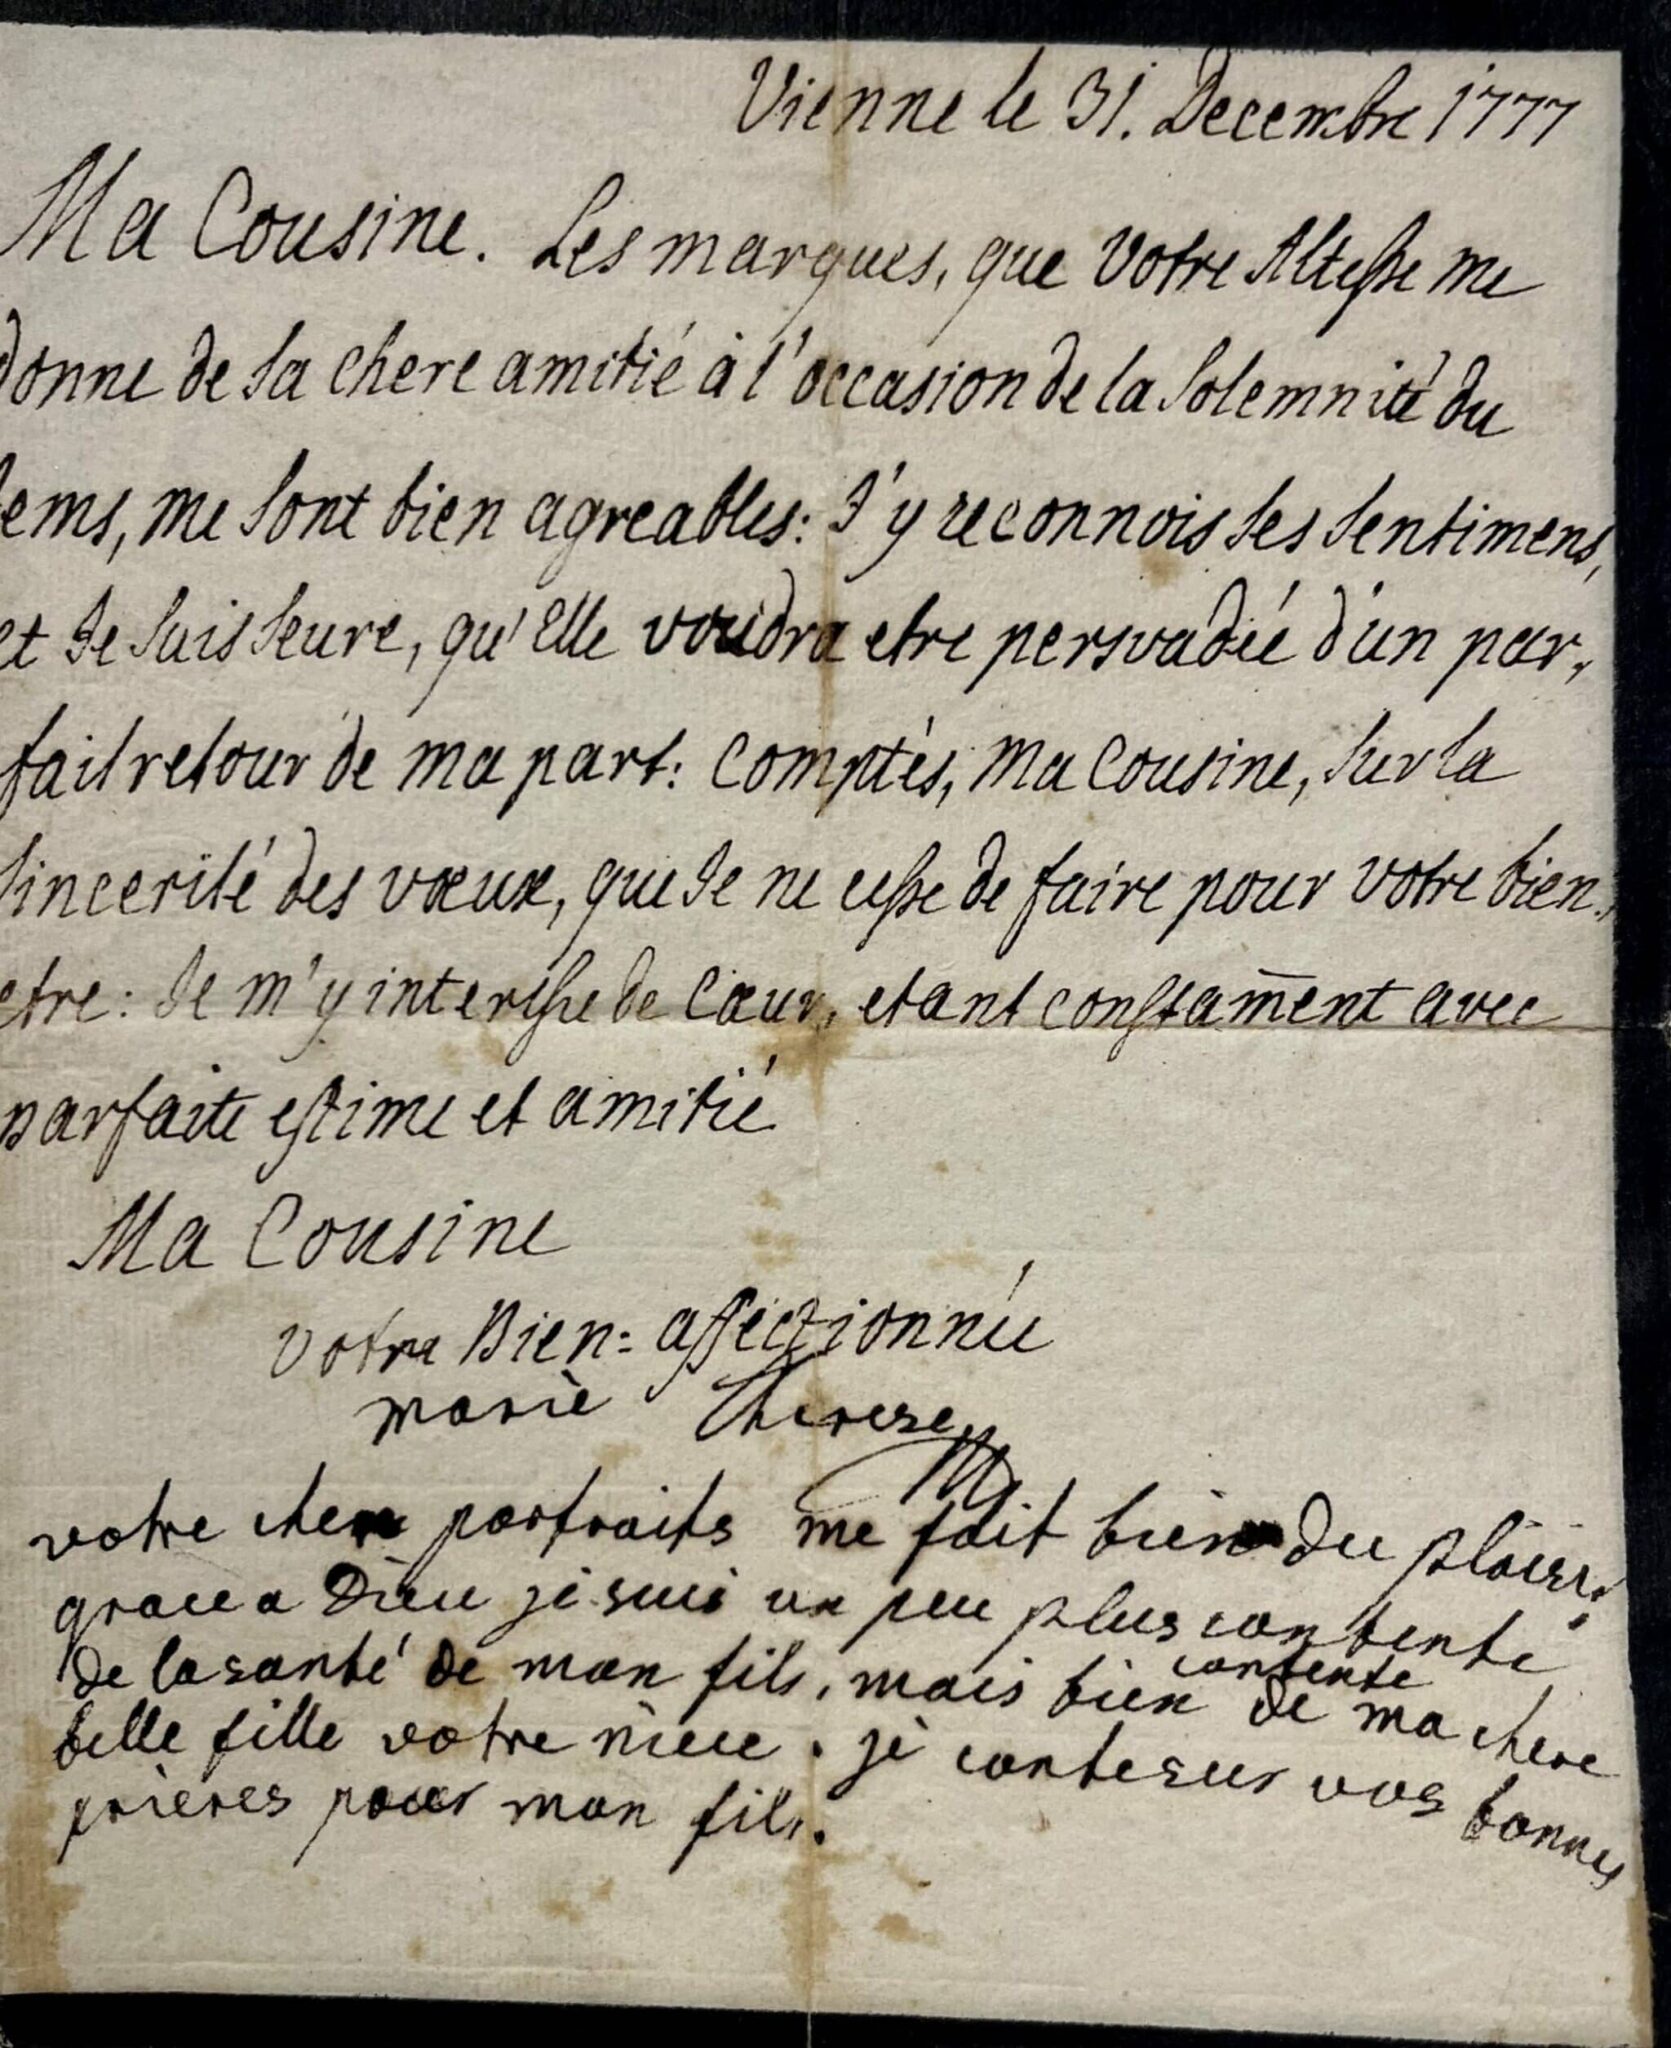 Vienne le 31. Decembre 1777
Ma Cousine. Les marques, que Votre Altesse me
donne de sa chere amitié à l'occasion de la Solemnité du
tems, me sont bien agreables: J'y reconnois ses sentimens,
et Je suis seure, qu'Elle voudra etre persvadée d'un par,
fait retour de ma part: comptès, Ma Cousine, sur la
sincerité des vœux, que Je ne cesse de faire pour votre bien,
etre: Je m'y interesse de Cœur, etant constam̅ent avec
parfaite estime et amitié
Ma Cousine
votre Bien= affectionnée
marie Therese
votre chere portraits me fait bien du plaisir,
grace a Dieu je suis un peu plus contente
de la santé de mon fils, mais bien contente de ma chere
belle fille votre niece. je conte sur vos bonnes
prieres pour mon fils.